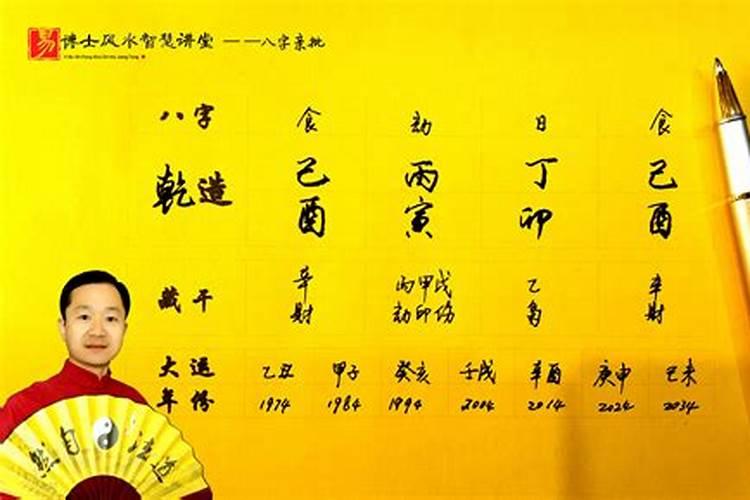 易 谦士风水智慧讲堂 ——八字亲批
八字 食 劫 日 食
乾造 己 丙 丁 己
酉 寅 卯 酉
藏干 辛 丙甲戊 乙 辛
财 劫印伤 枭 财
大运 乙丑 甲子 癸亥 壬戌 辛酉 庚申 己未
年份 1974 1984 1994 2004 2014 2024 2034
道法自然